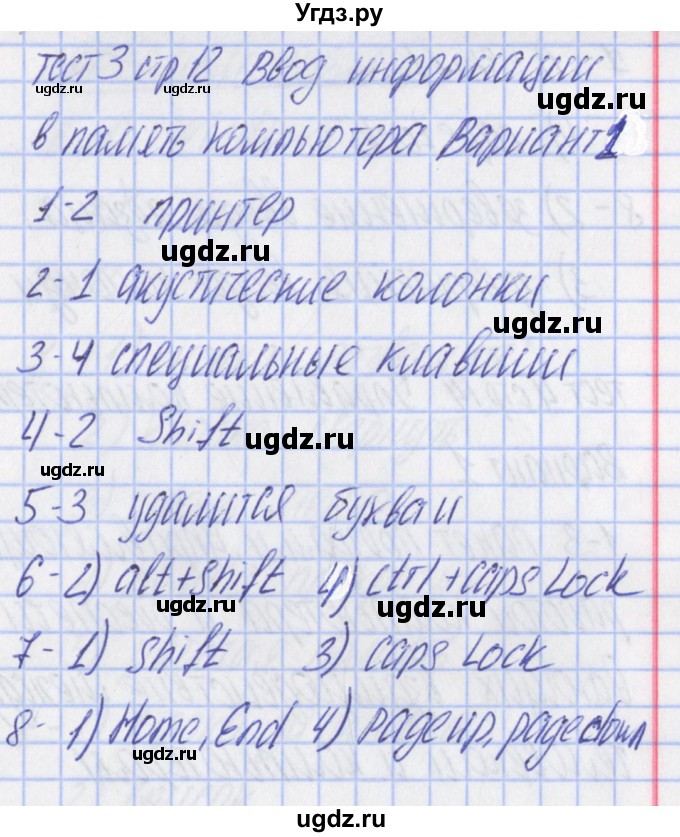 Угдз.ру
тест 3 стр 12 Ввод информации
ugdz.ru ugdz.ru
в память компьютера Вариант 1
ugdz.ru
1-2 принтер
ugdz.ru
2-1 акустические колонки
ugdz.ru
3-4 специальные клавиши
4-2 Shift ugdz.ru
ugdz.ru
5-3 удалится буква и
6-2) alt+shift 4) ctrl+caps Lock
ugdz.ru ugdz.ru
7-1) shift 3) caps Lock
8- 1) Home, End 4) page up, page down
ugdz.ru
ugdz.ru ugdz.ru